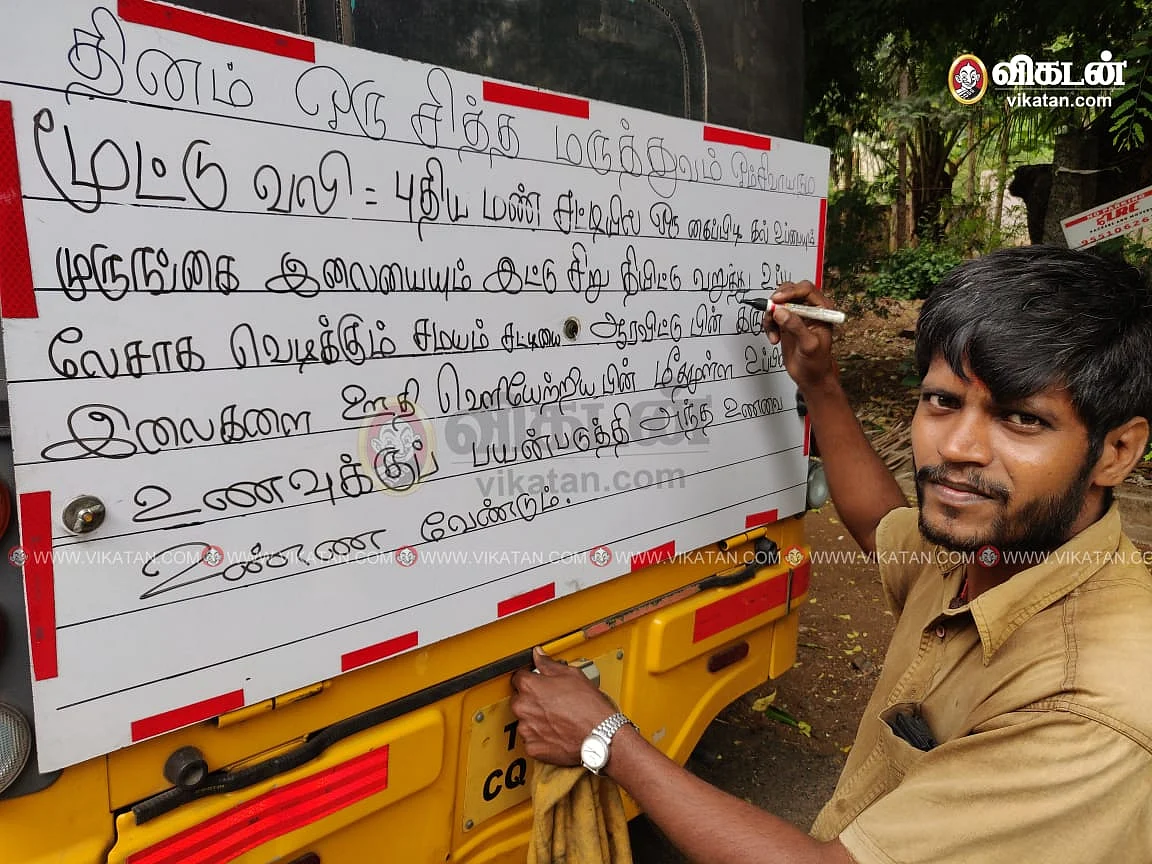 விகடன்
vikatan.com
தினம் ஒரு சித்த மருத்துவம் ஓம்சிவாயநம
மூட்டு வலி = புதிய மண் சட்டியில் ஒரு கைப்பிடி கல் உப்பையும்
முருங்கை இலையையும் இட்டு சிறு தீயிட்டு வறுத்து உப்பு
லேசாக வெடிக்கும் சமயம் சட்டியை ஆரவிட்டு பின்
இலைகளை ஊதி வெளியேற்றிய பின் மீதமுள்ள
உணவுக்குப் பயன்படுத்தி அந்த உணவை
உண்ண வேண்டும்.
விகடன்
vikatan.com
WWW.VIKATAN.COM WWW.VIKATAN.COM WWW.VIKATAN.COM WWW.VIKATAN.COM WWW.VIKATAN.COM
NO PARKING
CQ